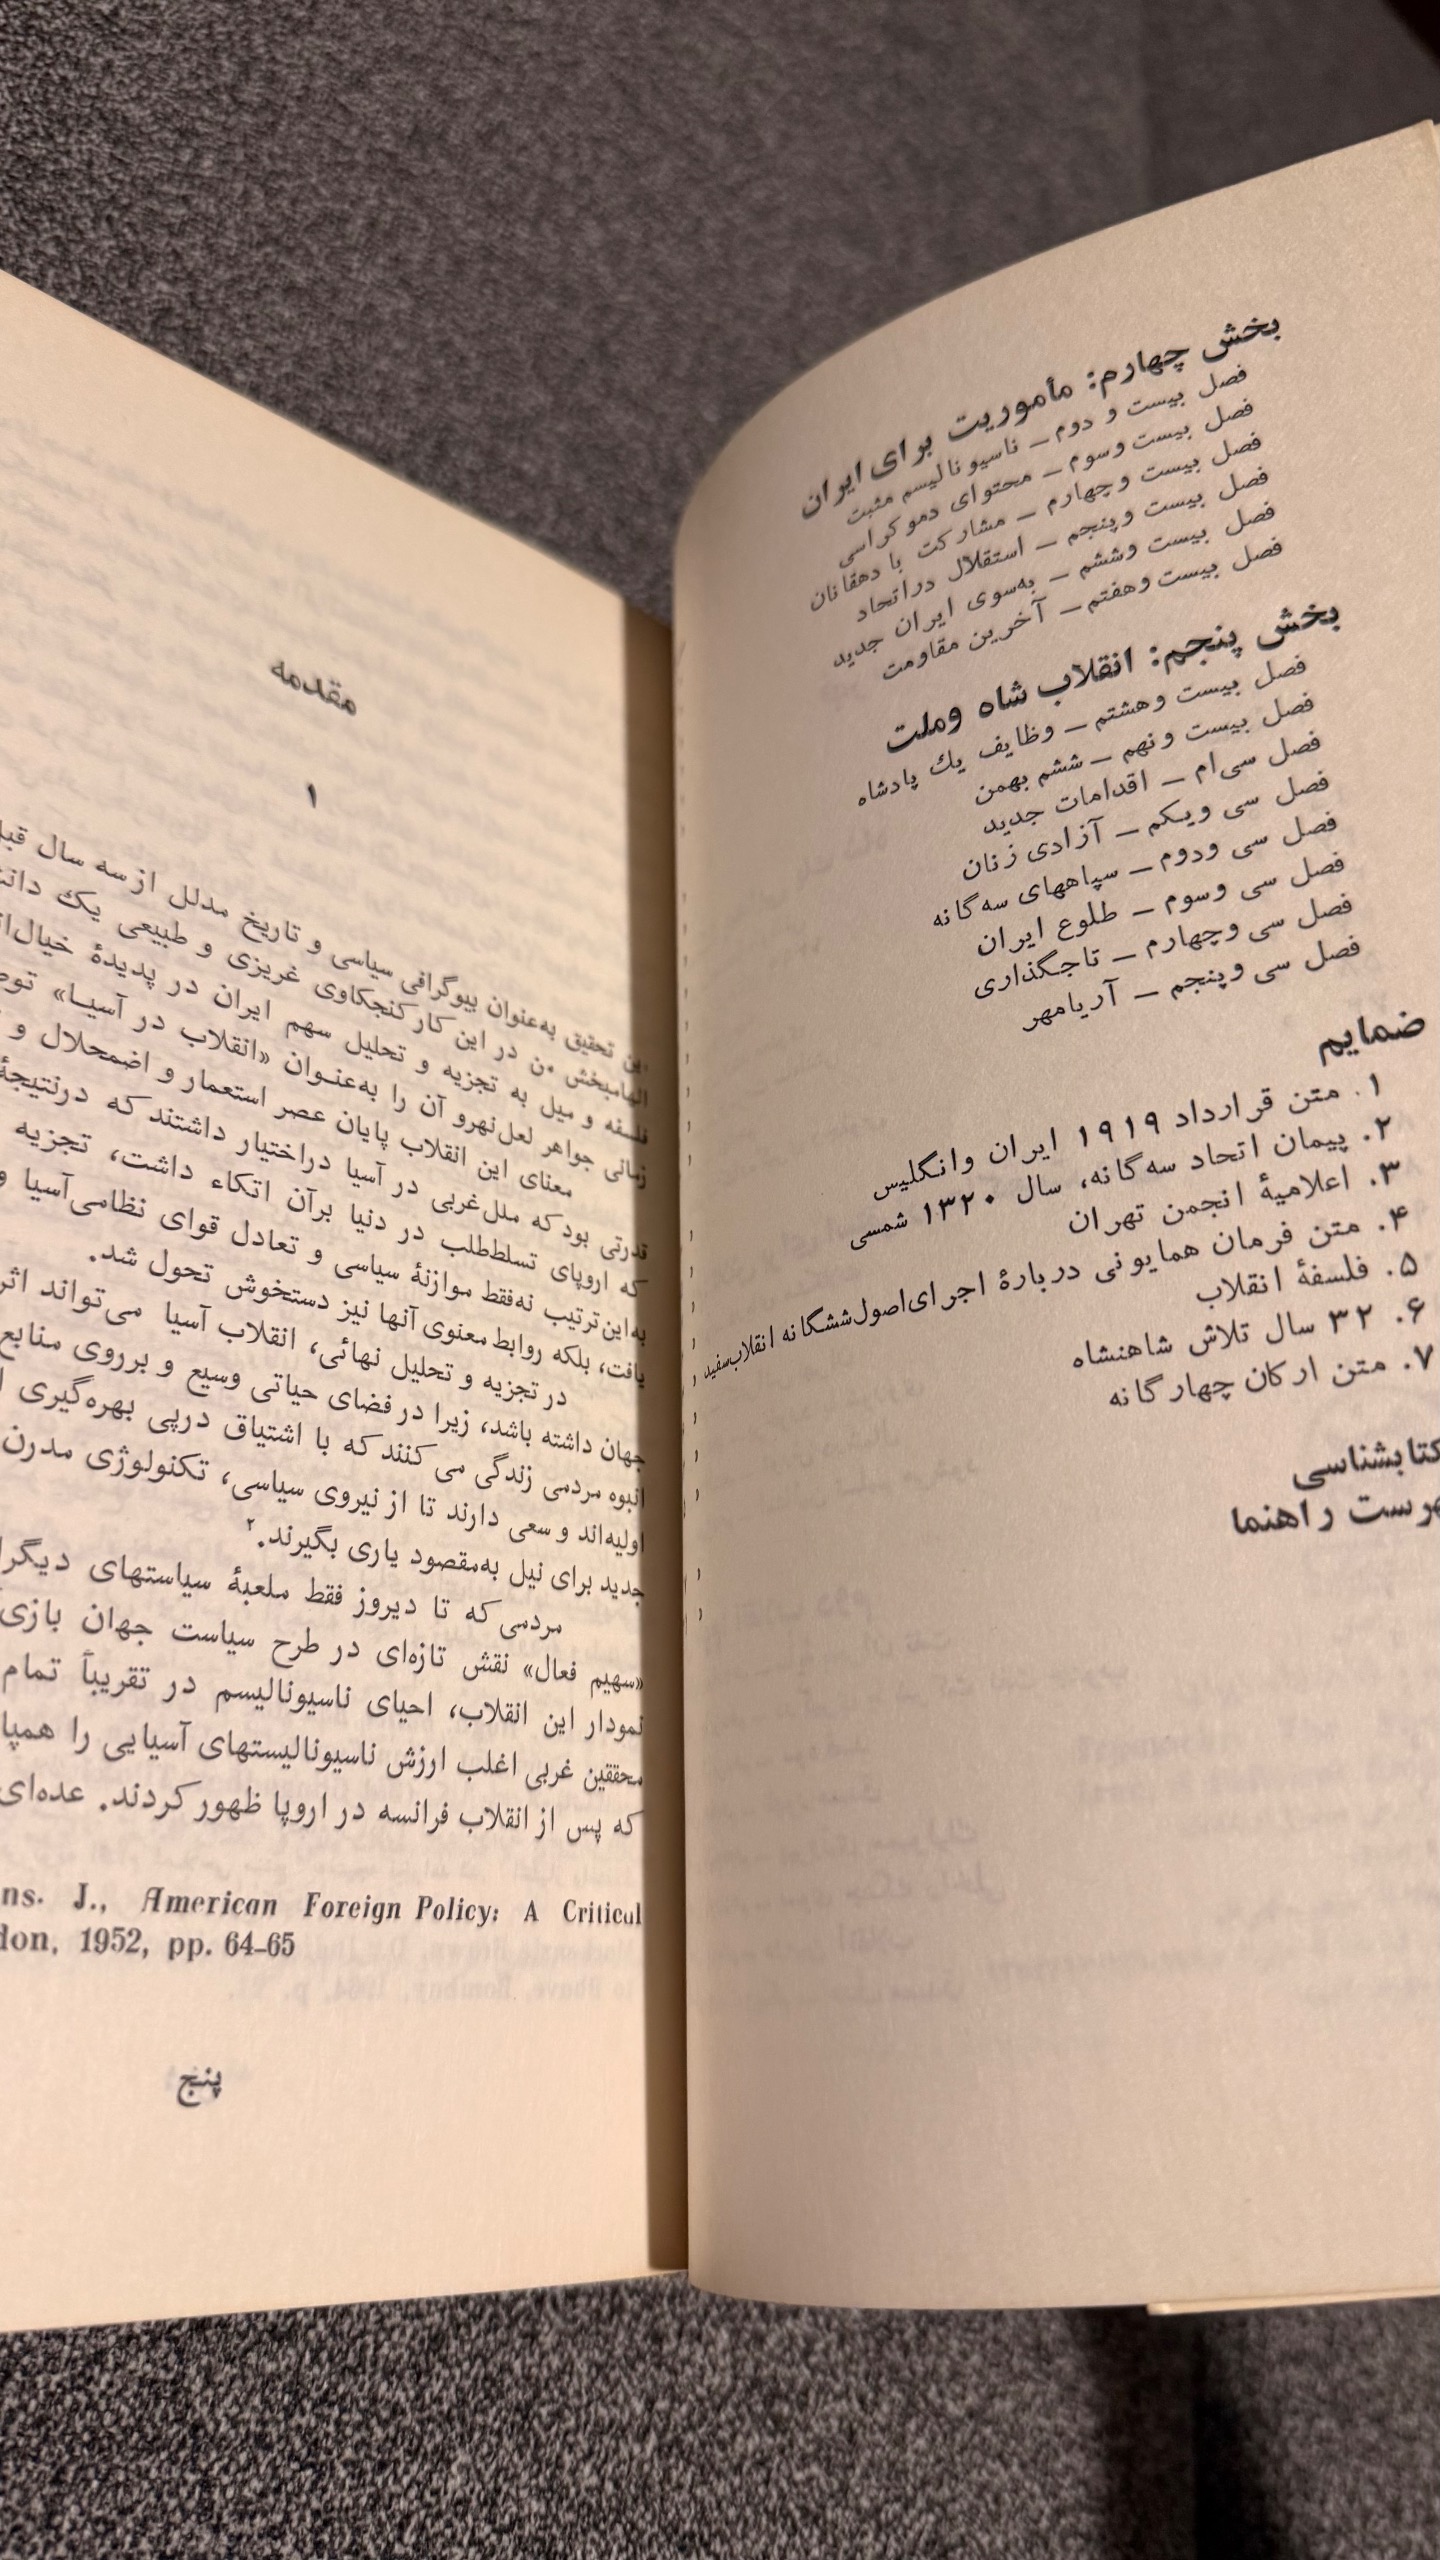 بخش چهارم: مأموریت برای ایران
فصل بیست و دوم ـ ناسیونالیسم مثبت
فصل بیست وسوم ـ محتوای دموکراسی
فصل بیست وچهارم ـ مشارکت با دهقانان
فصل بیست وپنجم ـ استقلال دراتحاد
فصل بیست وششم ـ به‌سوی ایران جدید
فصل بیست وهفتم ـ آخرین مقاومت
بخش پنجم: انقلاب شاه وملت
فصل بیست وهشتم ـ وظایف یك پادشاه
فصل بیست ونهم ـ ششم بهمن
فصل سی‌ام ـ اقدامات جدید
فصل سی ویکم ـ آزادی زنان
فصل سی ودوم ـ سپاههای سه‌گانه
فصل سی وسوم ـ طلوع ایران
فصل سی وچهارم ـ تاجگذاری
فصل سی وپنجم ـ آریامهر
ضمایم
۱. متن قرارداد ۱۹۱۹ ایران وانگلیس
۲. پیمان اتحاد سه‌گانه، سال ۱۳۲۰ شمسی
۳. اعلامیهٔ انجمن تهران
۴. متن فرمان همایونی دربارهٔ اجرای‌اصول‌ششگانه انقلاب‌سفید
۵. فلسفهٔ انقلاب
۶. ۳۲ سال تلاش شاهنشاه
۷. متن ارکان چهارگانه
کتابشناسی
هرست راهنما
مقدمه
۱
ین تحقیق به‌عنوان بیوگرافی سیاسی و تاریخ مدلل ازسه سال قبل
الهامبخش من در این کارکنجکاوی غریزی و طبیعی یك
فلسفه و میل به تجزیه و تحلیل سهم ایران در پدیدهٔ
زمانی جواهر لعل‌نهرو آن را به‌عنـوان «انقلاب در آسیـا»
معنای این انقلاب پایان عصر استعمار و اضمحلال و
قدرتی بود که ملل‌غربی در آسیا دراختیار داشتند که درنتیجهٔ
که اروپای تسلط‌طلب در دنیا برآن اتکاء داشت، تجزیه
به‌این‌ترتیب نه‌فقط موازنهٔ سیاسی و تعادل قوای نظامی‌آسیا و
یافت، بلکه روابط معنوی آنها نیز دستخوش تحول شد.
در تجزیه و تحلیل نهائی، انقلاب آسیا می‌تواند اثر
جهان داشته باشد، زیرا در فضای حیاتی وسیع و برروی منابع
انبوه مردمی زندگی می‌کنند که با اشتیاق درپی بهره‌گیری
اولیه‌اند و سعی دارند تا از نیروی سیاسی، تکنولوژی مدرن
جدید برای نیل به‌مقصود یاری بگیرند.۲
مردمی‌که تا دیروز فقط ملعبهٔ سیاستهای
«سهیم فعال» نقش تازه‌ای در طرح سیاست جهان
نمودار این انقلاب، احیای ناسیونالیسم در تقریباً تمام
محققین غربی اغلب ارزش ناسیونالیستهای آسیایی را
که پس از انقلاب فرانسه در اروپا ظهور کردند. عده‌ای
ns. J., American Foreign Policy: A Critical
don, 1952, pp. 64-65
پنج